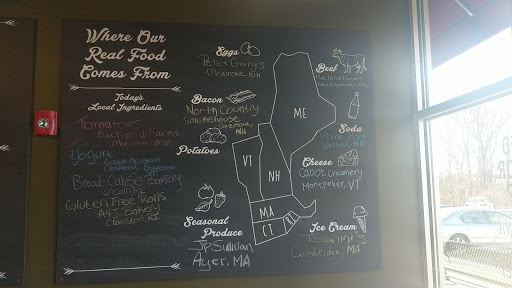 Where Our
Real Food
Comes From
Today's
Local Ingredients
Tomatoes
Backyard Farms
Yogurt
Green Mountain
Creamery
Bread Calise Bakery
Lincoln
Gluten Free Rolls
A&J Bakery
Cranston, RI
Eggs
Pete & Gerry's
Monroe, NH
Bacon
North Country
Smokehouse
NH
Potatoes
Seasonal
Produce
JP Sullivan
Ayer, MA
Beef
Soda
Cheese
Cabot Creamery
Montpelier, VT
Ice Cream
Cambridge, MA
ME
VT
NH
MA
CT
RI